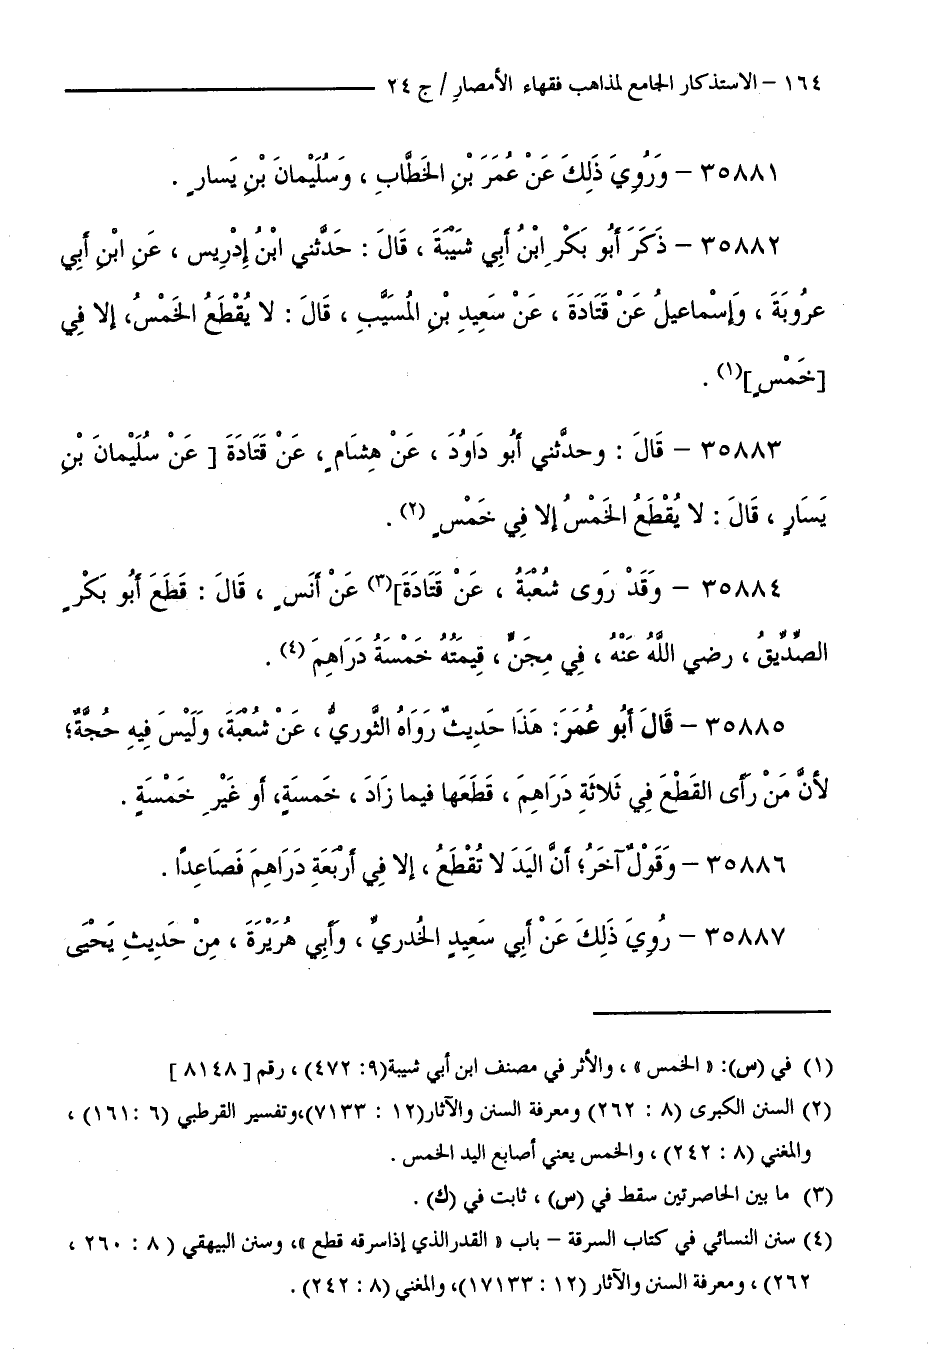 ١٦٤ – الاستذكار الجامع لمذاهب فقهاء الأمصار / ج ٢٤
٣٥٨٨١ – وَرُوِيَ ذَلِكَ عَنْ عُمَرَ بْنِ الخَطَّابِ ، وَسُلَيْمانَ بْنِ يَسارٍ .
٣٥٨٨٢ – ذَكَرَ أَبُو بَكْرِ ابْنُ أَبي شَيْبَةَ ، قَالَ : حَدَّثني ابْنُ إِدْرِيس ، عَنِ ابْنِ أَبي
عرُوبَةَ ، وَإِسْماعيلُ عَنْ قَتَادَةَ ، عَنْ سَعِيدِ بْنِ المُسَيَّبِ ، قَالَ : لا يُقْطَعُ الخَمْسُ، إلا فِي
[خَمْسٍ](١) .
٣٥٨٨٣ – قَالَ : وحدَّثني أَبُو دَاوُدَ ، عَنْ هِشَامٍ ، عَنْ قَتَادَةَ [ عَنْ سُلَيْمانَ بْنِ
يَسَارٍ ، قَالَ : لا يُقْطَعُ الخَمْسُ إلا فِي خَمْسٍ (٢) .
٣٥٨٨٤ – وَقَدْ رَوى شُعْبَةُ ، عَنْ قَتَادَةَ](٣) عَنْ أَنَسٍ ، قَالَ : قَطَعَ أَبُو بَكْرٍ
الصِّدِّيقُ ، رضي اللَّهُ عَنْهُ ، فِي مِجَنٍّ ، قِيمَتُه خَمْسَةُ دَرَاهِمَ (٤) .
٣٥٨٨٥ – قَالَ أَبُو عُمَرَ : هَذَا حَدِيثٌ رَوَاهُ الثَّوريُّ ، عَنْ شُعْبَةَ، وَلَيْسَ فِيهِ حُجَّةٌ؛
لأنَّ مَنْ رَأى القَطْعَ فِي ثَلاثَةِ دَرَاهِمَ ، قَطَعَها فيما زَادَ ، خَمسَةٍ، أو غَيْرِ خَمْسَةٍ .
٣٥٨٨٦ – وَقَوْلٌ آخَرُ؛ أنَّ اليَدَ لا تُقْطَعُ ، إلا فِي أرْبَعَةِ دَرَاهِمَ فَصَاعِدًا .
٣٥٨٨٧ – رُوِيَ ذَلِكَ عَنْ أَبِي سَعِيدٍ الخُدريِّ ، وَأَبِي هُرَيْرَةَ ، مِنْ حَدِيثِ يَحْيَى
(١) في (س): « الخمس » ، والأثر في مصنف ابن أبي شيبة(٩: ٤٧٢) ، رقم [ ٨١٤٨ ]
(٢) السنن الكبرى (٨ : ٢٦٢) ومعرفة السنن والآثار(١٢ : ٧١٣٣)،وتفسير القرطبي (٦ : ١٦١) ،
والمغني (٨ : ٢٤٢) ، والخمس يعني أصابع اليد الخمس .
(٣) ما بين الحاصرتين سقط في (س) ، ثابت في (ك) .
(٤) سنن النسائي في كتاب السرقة – باب « القدرالذي إذاسرقه قطع »، وسنن البيهقي ( ٨ : ٢٦٠ ،
٢٦٢) ، ومعرفة السنن والآثار (١٢ : ١٧١٣٣)، والمغني (٨ : ٢٤٢) .